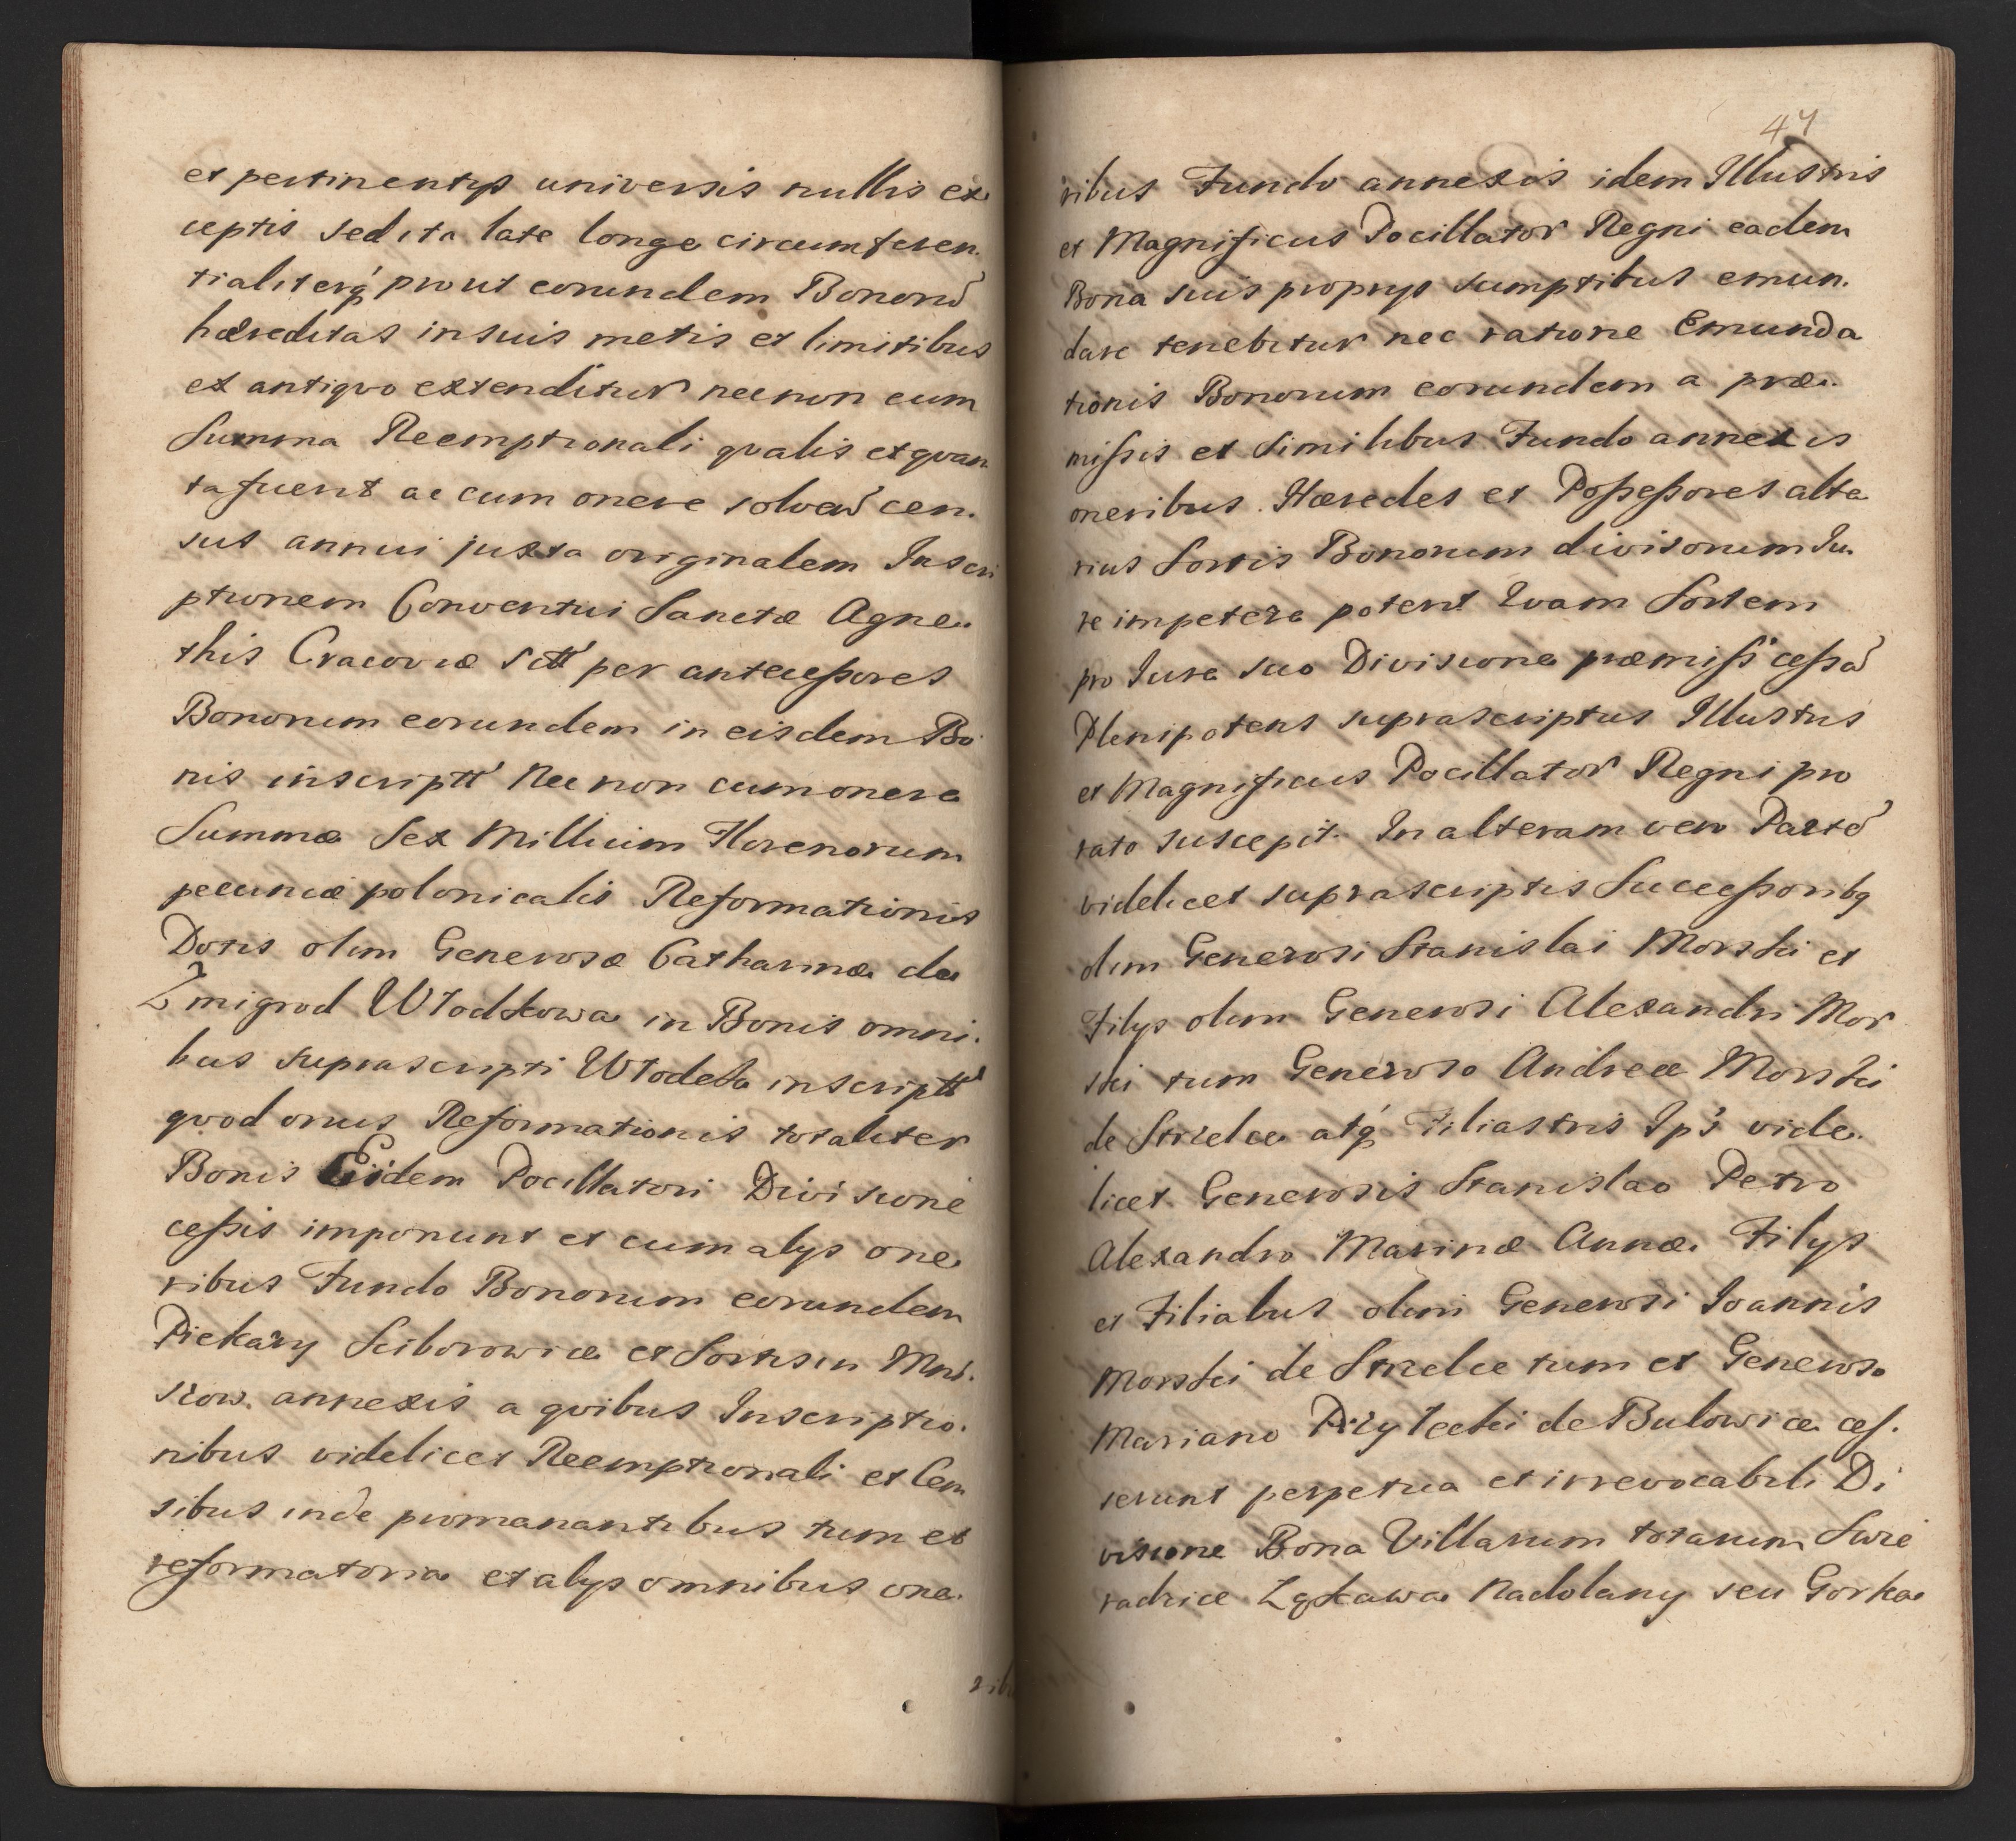 et pertinentys universis nullis ex
ceptis sed ita late longe circumferen.
tialiterq́ prout eorundem Bonorū
hæreditas in suis metis et limitibus
ex antiqvo extenditur necnon cum
Summa Reemptionali qvalis et qvan
ta fuerit ac cum onere solvē cen.
sus annui juxta originalem Inscri
ptionem Conventui Sanctæ Agne.
this Cracoviæ stt̃ per antecessores
Bonorum eorundem in eisdem Bo
nis inscriptt̃ Nec non cum onere
Summæ Sex Millium Florenorum
pecuniæ polonicalis Reformationis
Dotis olim Generosæ Catharinæ de
Zmigrod Włodkowa in Bonis omni.
bus suprascripti Włodeka inscriptt̃
qvod onus Reformationis totaliter
Bonis Eidem Pocillatori Divisione
cessis imponunt et cum alys one
ribus Fundo Bonorum eorundem
Piekáry Sciborowice et Sortis in Mni.
szow. annexis a qvibus Inscriptio.
nibus videlicet Reemptionali et Cen
sibus inde promanantibus tum et
reformatoria et alys omnibus one.
ribu
47
ribus Fundo annexis idem Illustris
et Magnificus Pocillator Regni eadem
Bona suis proprys sumptibus emun.
dare tenebitur nec ratione Emunda
tionis Bonorum eorundem a præ.
missis et similibus Fundo annexis
oneribus. Hæredes et Possessores alte
rius Sortis Bonorum divisorum Ju.
re impetere poterit Qvam Sortem
pro Jure suo Divisione præmiss̃ cessā
Plenipotens suprascriptus Illustris
et Magnificus Pocillator Regni pro
rato suscepit. In alteram vero Partē
videlicet suprascriptis Successoribq
olim Generosi Stanislai Morski et
Filys olim Generosi Alexandri Mor
ski tum Generoso Andreæ Morski
de Strzelce atq́ Filiastris Ips̃ vide.
licet Generosis Stanislao Petro
Alexandro Marinæ Annæ. Filys
et Filiabus olim Generosi Joannis
Morski de Strzelce tum et Generoso
Mariano Przyłecki de Bulowice ces.
serunt perpetua et irrevocabili Di
visione Bona Villarum totarum Swie
radzice Zgława Nadolany seu Gorka